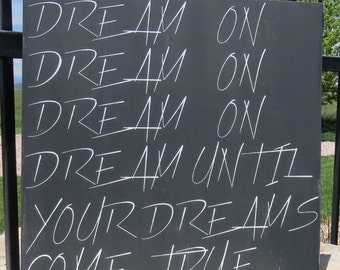 DREAM ON
DREAM ON
DREAM ON
DREAM UNTIL
YOUR DREAMS
COME TRUE